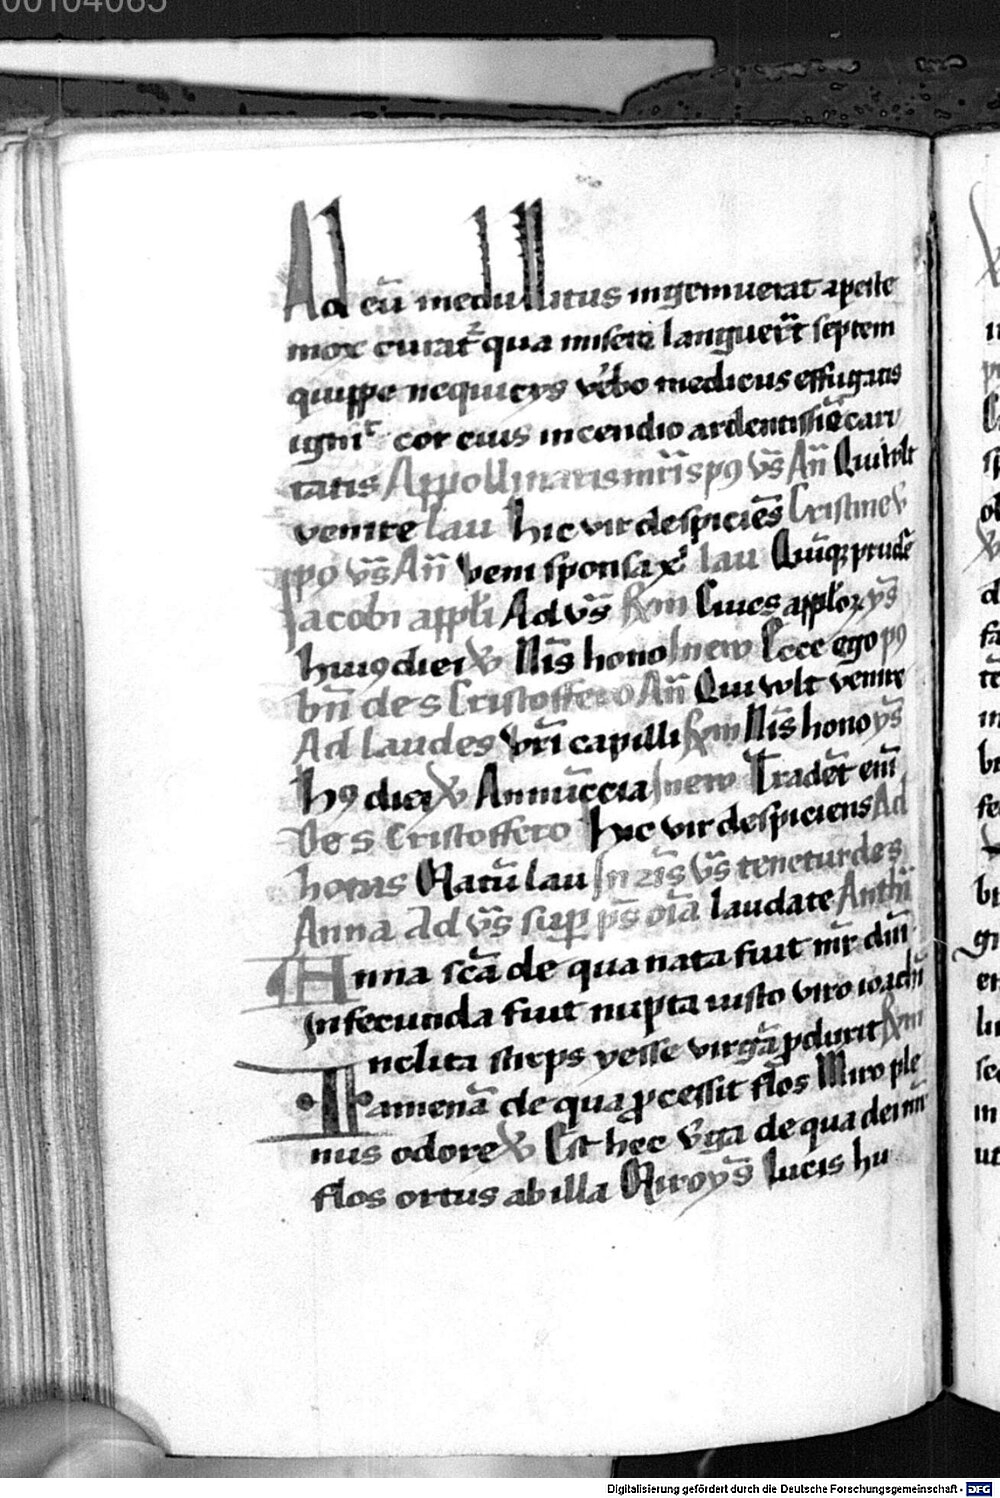 00104065
Ad eu᷃ medullitus ingemuerat a peste
mox curat᷑ qua misere languer̃t septem
quippe nequicijs v̓bo medicus effugatis
ignit᷑ cor eius incendio ardentissi͂e cari
tatis Appollinaris mr̃is pꝯ vs̃ An̄ Qui wlt
venire lau hic vir despiciẽs Cristine v
pꝯ vs̃ An̄ veni sponsa xͥ lau Quīqꝫ prudẽ
Jacobi appl̓i Ad vs̃ Rm Ciues appl̓oꝝ ys̃
huiꝯ diei v Nīs hono In ew Ecce ego pꝯ
bn̄ des Cristoffero An̄ Qui wlt venire
Ad laudes vr̃i capilli Rm Nīs hono ys̃
hꝯ diei v Annũccia In ew Tradẽt em̃
Des Cristoffero hic vir despiciens Ad
horas Natũ lau In zīs vs̃ tenetur des
Anna Ad vs̃ suꝑ ps̃ oĩa laudate Anthī
Anna scã de qua nata fuit mr̃ dnī
Infecunda fuit nupta iusto viro ioachī
nclita stirps yesse virgã ꝓduxit Rm
amenã de qua ꝓcessit flos Miro ple
nus odore v Est hec v̓ga de qua dei nr̃i
flos ortus ab illa Miro ys̃ Lucis hu
Digitalisierung gefördert durch die Deutsche Forschungsgemeinschaft - DFG